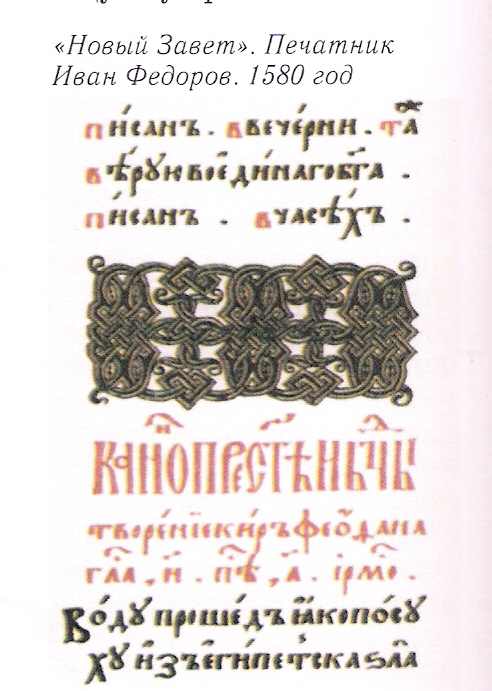 «Новый Завет». Печатник
Иван Федоров. 1580 год
пи́санъ . ввече́рни . та̑
вѣ́рꙋювоє҆ди́нагобг҃а .
пи́санъ . вчасѣ́хъ .
канѡⷩ҇престѣ́ибц҃ѣ
творе́нїеки́ръѳеѡ́дана
гла҃ , и҃ . пѣ҃ , а҃ . ірмо҃ .
Во́дꙋпроше́дъꙗ҆копо́сꙋ
хꙋ и҆зъє҆ги́петскаѕла